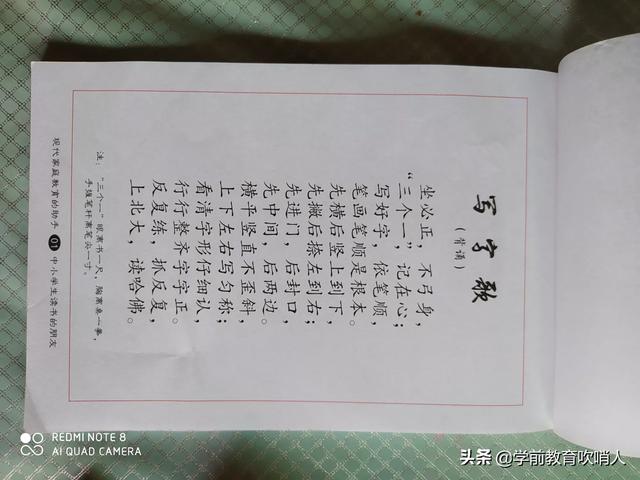 写字歌
(背诵)
坐必正，不弓身，
“三个一，记在心；
写好字，依笔顺，
笔画笔顺是根本。
先横后竖上到下，
先撇后捺左到右；
先进门，后封口，
先中间，后两边。
横平竖直不歪斜，
上下左右写匀称；
看清字形仔细认，
行行整齐字字正。
反复练，抓反复，
上北大，读哈佛。
注：“三个一”眼离书一尺，胸离桌一拳，
手握笔杆离笔尖一寸。
现代家庭教育的助手 01 中小学生读书的朋友
REDMI NOTE 8
AI QUAD CAMERA
头条 @学前教育吹哨人